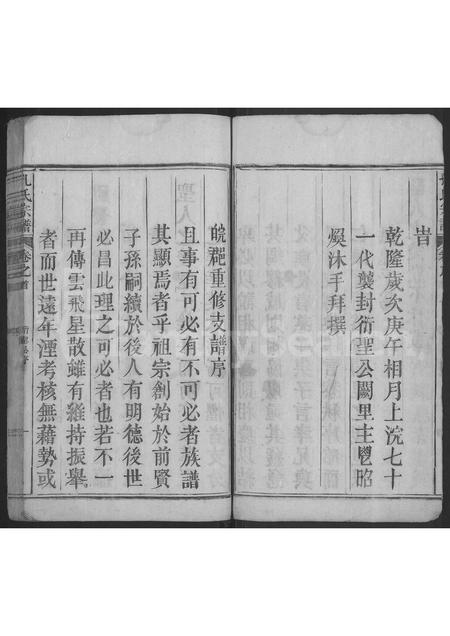 旹
乾隆歲次庚午相月上浣七十
一代襲封衍聖公闕里主鬯昭
煥沐手拜撰
皖郡重修支譜序
且事有可必有不可必者族譜
其顯焉者乎祖宗創始於前賢
子孫嗣續於後人有明德後世
必昌此理之可必者也若不一
再傳雲飛星散雖有維持振舉
者而世遠年湮考核無藉勢或
孔氏宗譜
卷之首
一